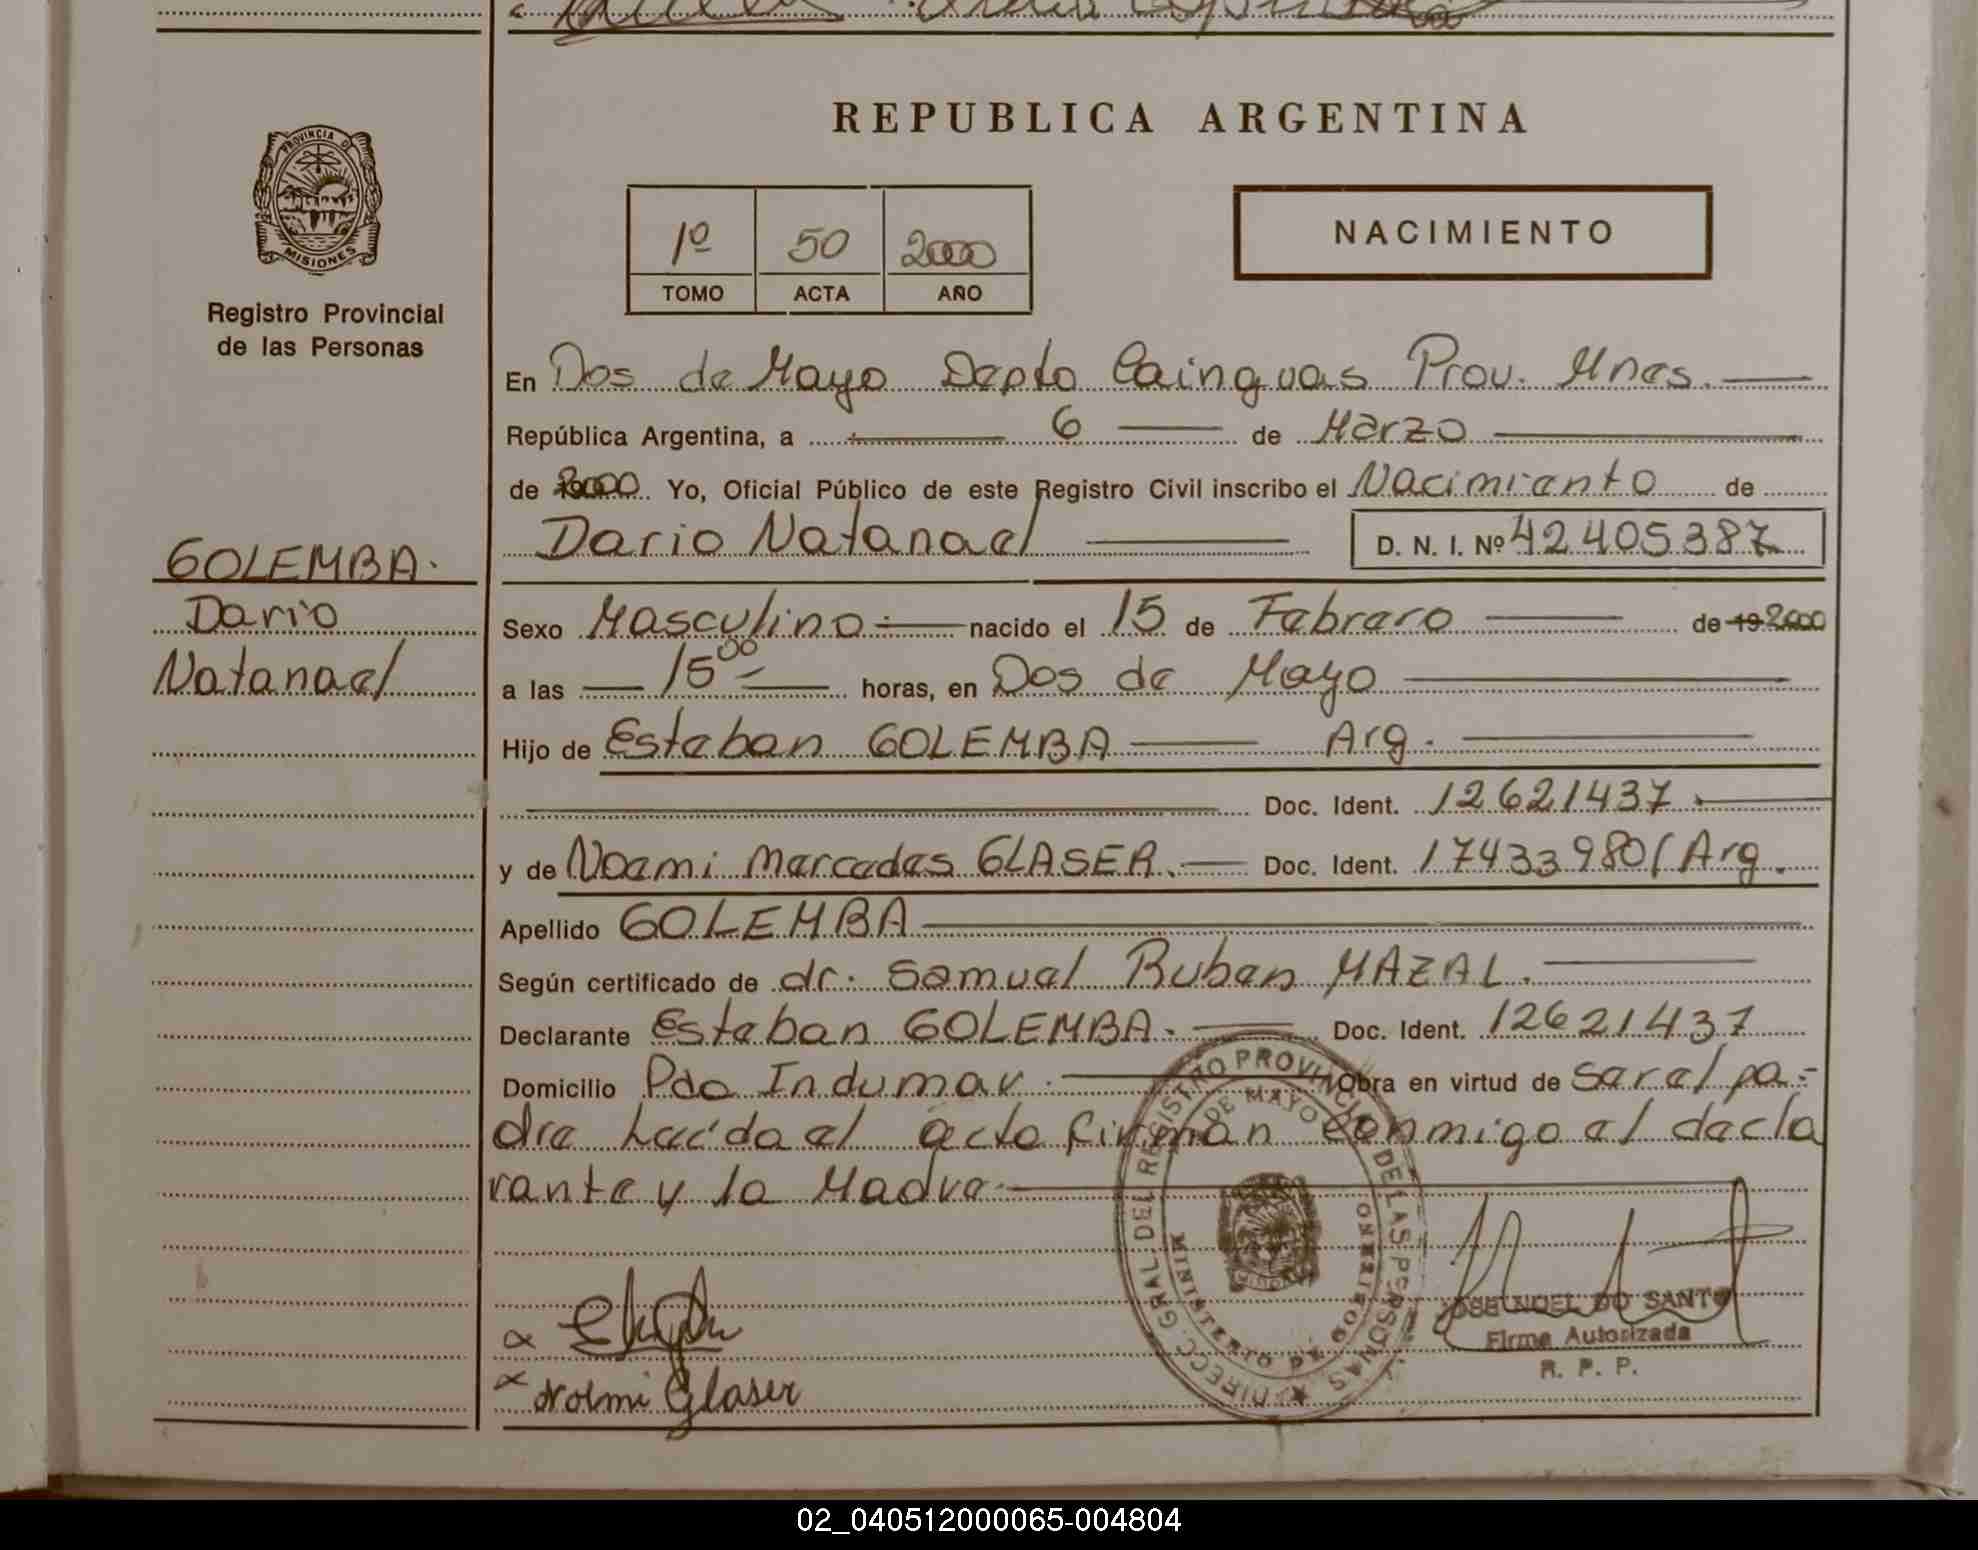 REPUBLICA ARGENTINA
PROVINCIA DE
MISIONES
Registro Provincial
de las Personas
1º 50 2000
TOMO ACTA AÑO
NACIMIENTO
En Dos de Mayo Depto Cainguas Prov. Mnes.
República Argentina, a 6 de Marzo
de 2000 Yo, Oficial Público de este Registro Civil inscribo el Nacimiento de
Dario Natanael D. N. I. Nº 42405387
GOLEMBA.
Dario
Natanael
Sexo Masculino nacido el 15 de Febrero de 19 2000
a las 15 00 horas, en Dos de Mayo
Hijo de Esteban GOLEMBA Arg.
Doc. Ident. 12621437
y de Noemi Mercedes GLASER. Doc. Ident. 17433980 Arg.
Apellido GOLEMBA
Según certificado de dr. Samuel Ruben MAZAL.
Declarante Esteban GOLEMBA. Doc. Ident. 12621437
Domicilio Pdo Indumar. Obra en virtud de ser el pa-
dre Leída el acta firman conmigo el decla
rante y la Madre
DIRECC. GRAL DEL REGISTRO PROVINCIAL DE LAS PERSONAS
DE MAYO
MINISTERIO DE GOBIERNO
JOSE NOEL DO SANTO
Firma Autorizada
R. P. P.
Noemi Glaser
02_040512000065-004804